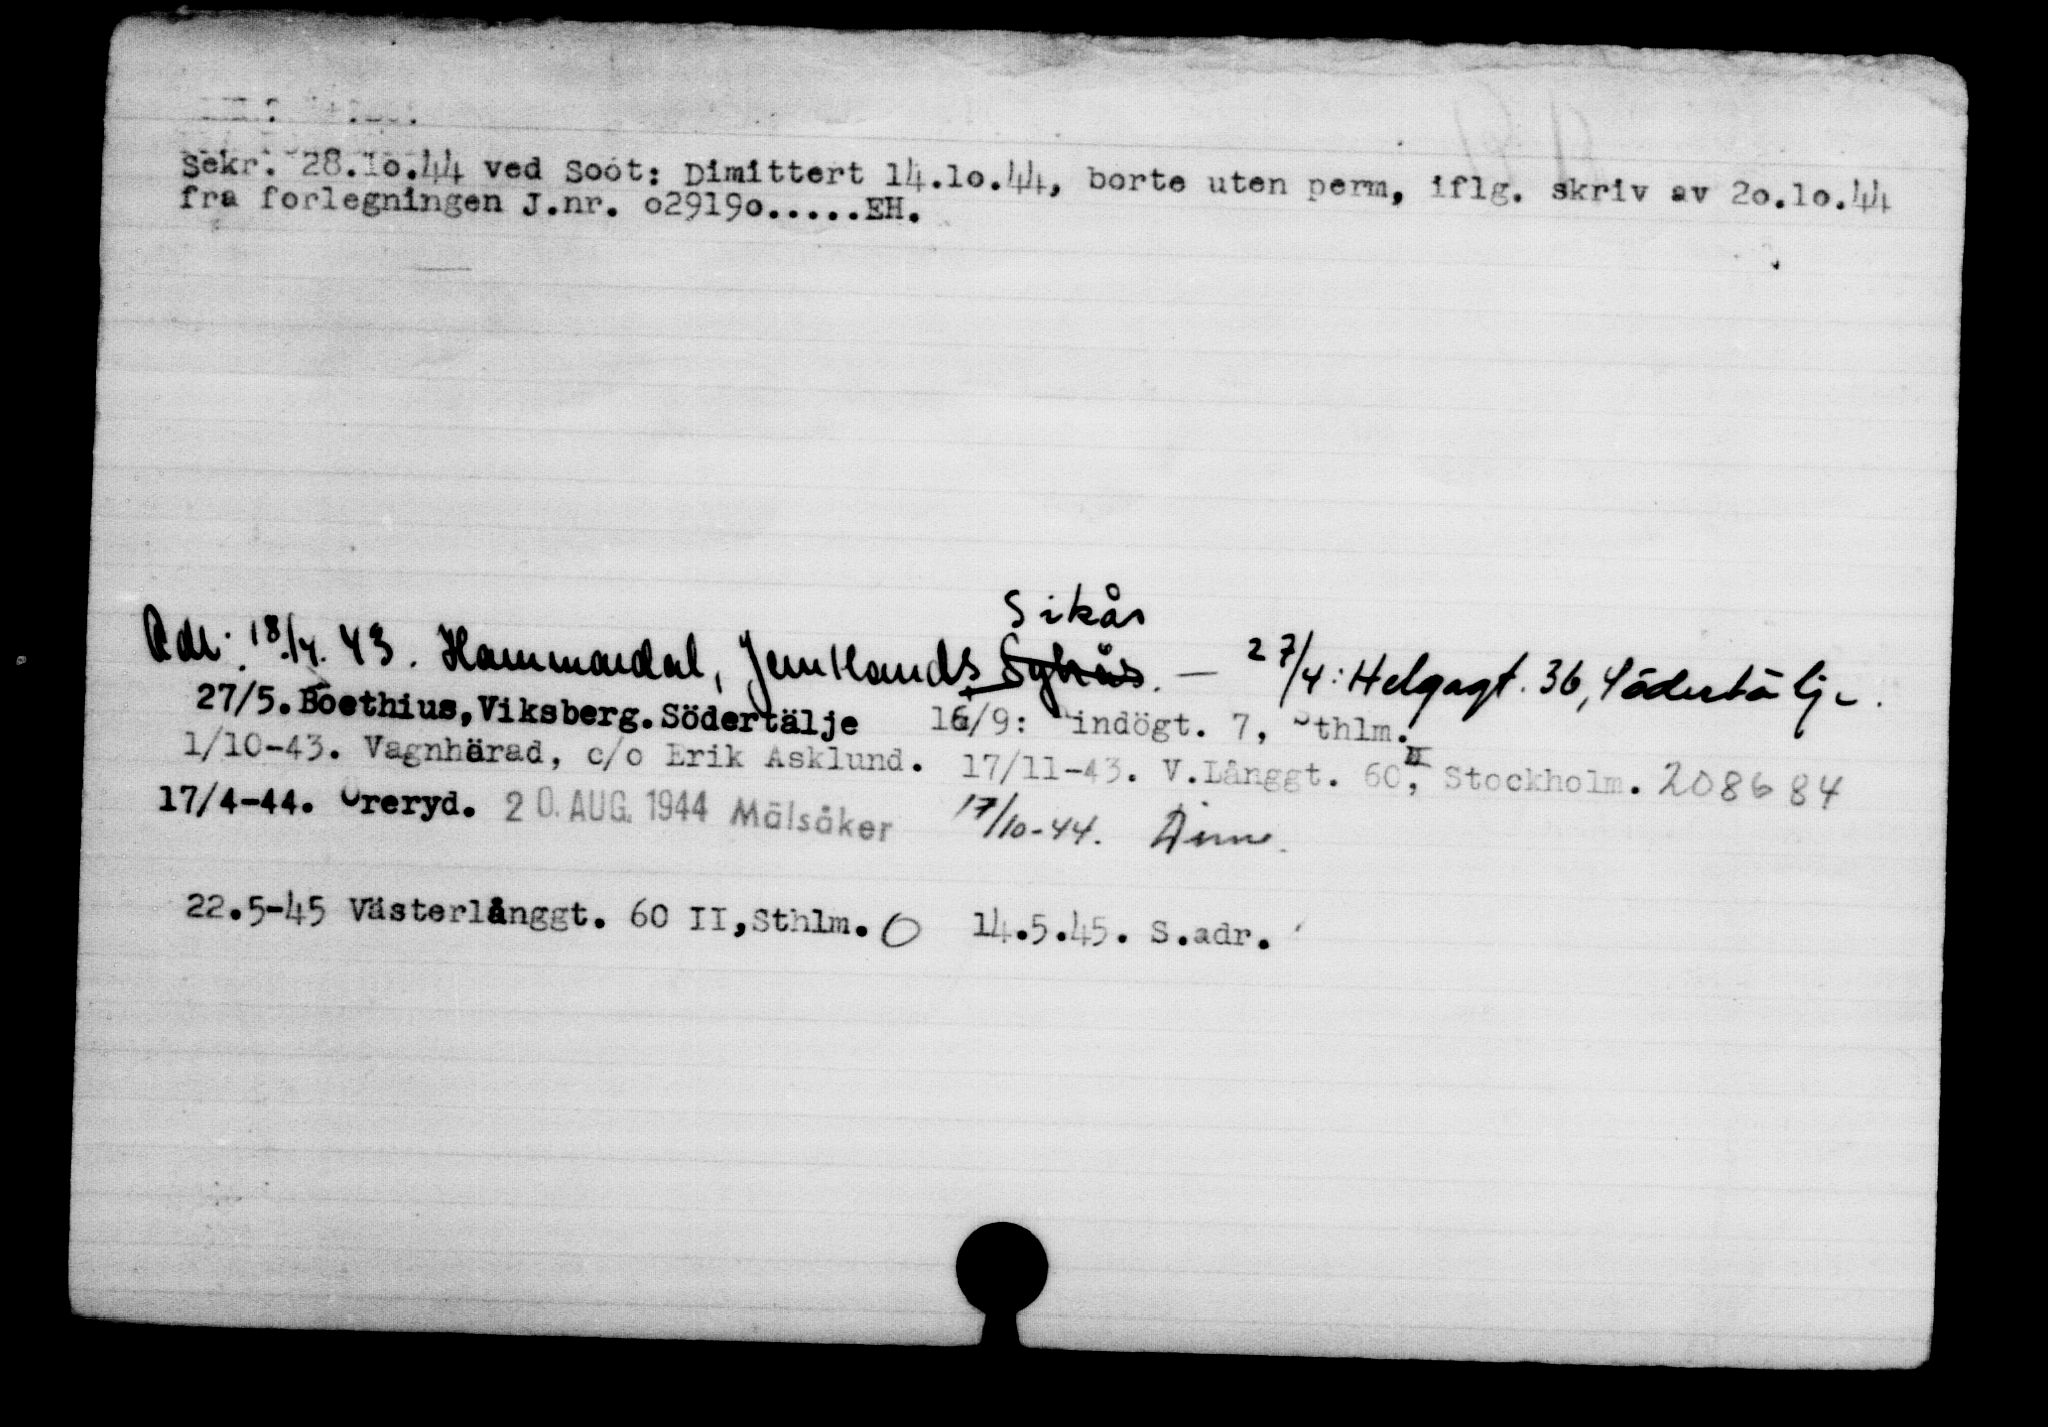 Sekr. 28.10.44 ved Soot: Dimittert 14.1o.44, borte uten perm, iflg. skriv av 2o.1o.44
fra forlegningen J.nr. o2919o.....EH.
Sikås
Adr: 18./4. 43. Hammerdal, Jemtlands Sykås. — 27/4: Helgagt. 36, Södertälje.
27/5. Boethius, Viksberg. Södertälje 16/9: indögt. 7, Sthlm.
1/10-43. Vagnhärad, c/o Erik Asklund. 17/11-43. V.Långgt. 60, II Stockholm. 208684
17/4-44. Öreryd. 20. AUG. 1944 Mälsåker 17/10-44. Dim.
22.5-45 Västerlånggt. 60 II, Sthlm. O 14.5.45. S.adr.